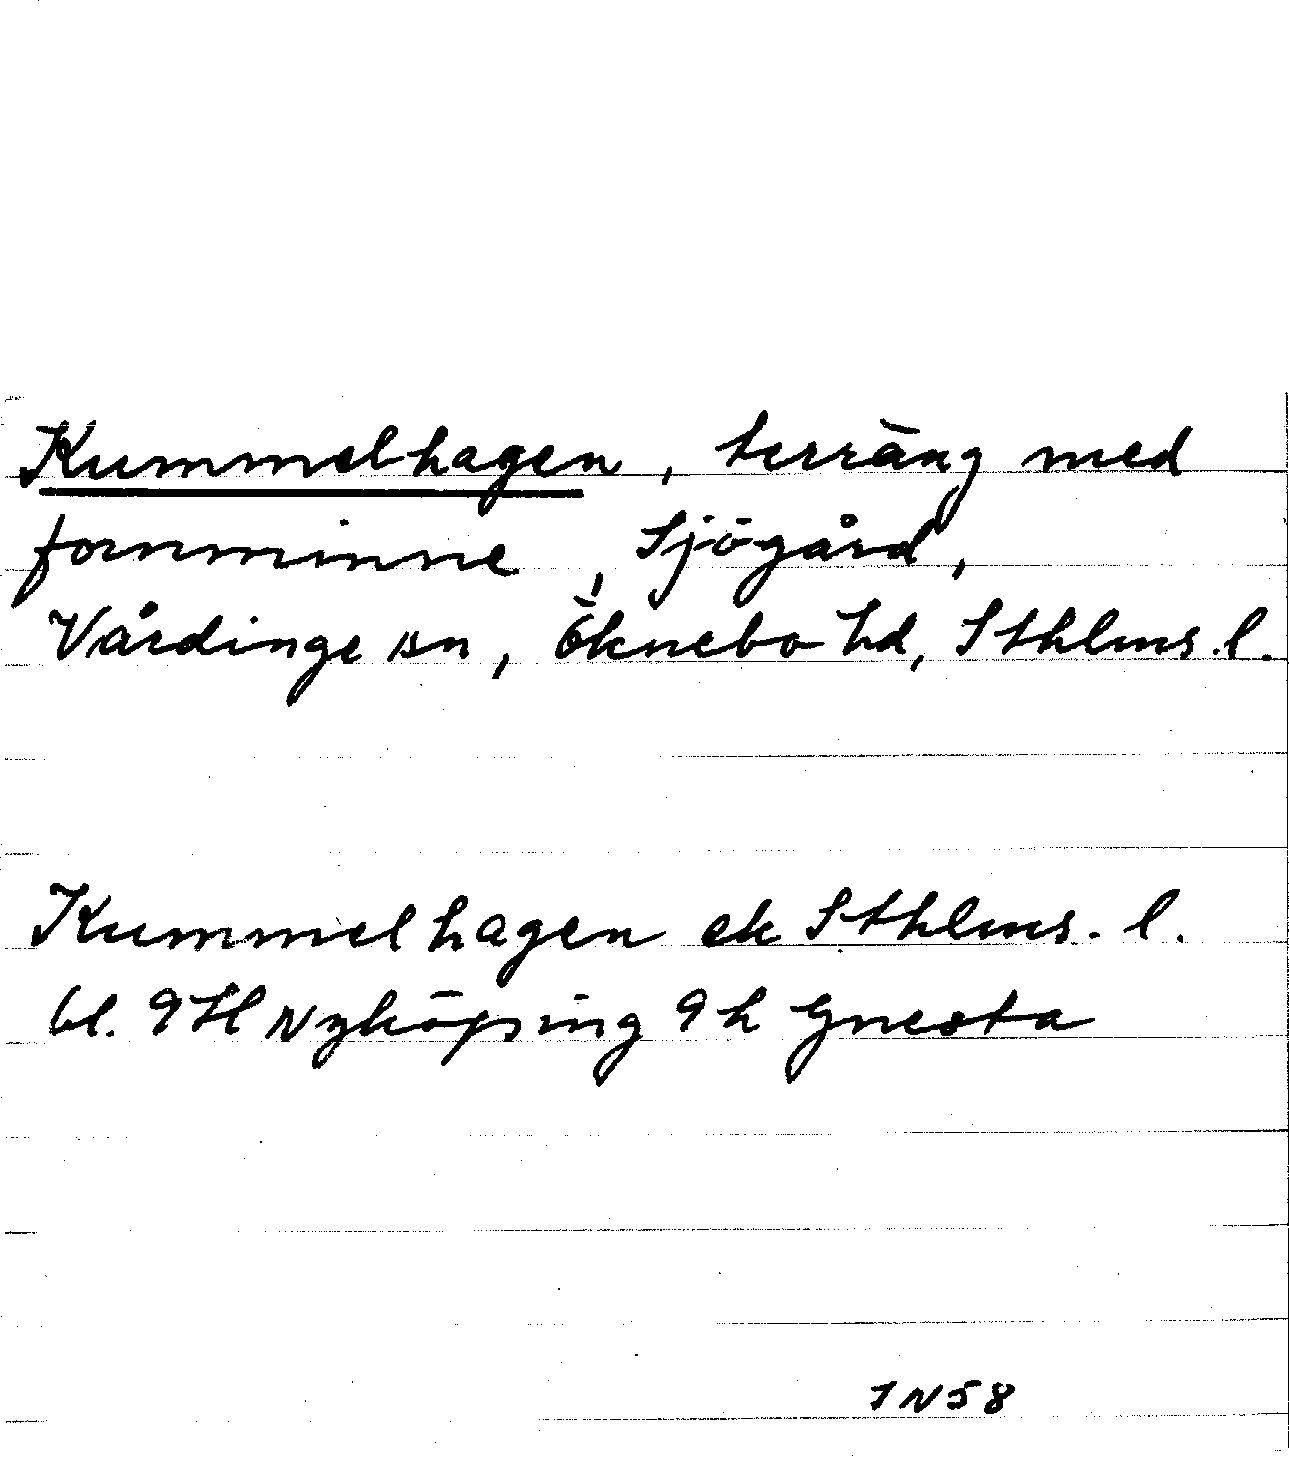 Kummelhagen, terräng med
fornminne, Sjögård,
Vårdinge sn, Öknebo hd, Sthlms. l.
Kummelhagen ek Sthlms. l.
bl. 9H Nyköping 9h Gnesta
IN58